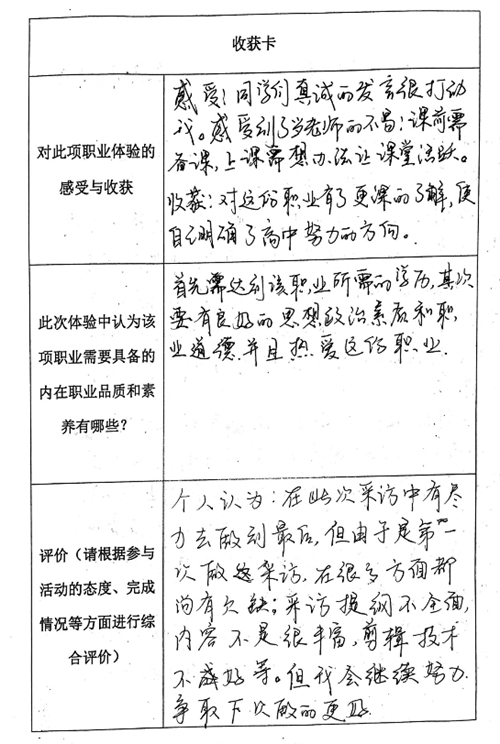 收获卡
对此项职业体验的
感受与收获
感受：同学们真诚的发言很打动
我。感受到了当老师的不易：课前需
备课，上课需想办法让课堂活跃。
收获：对这份职业有了更深的了解，使
自己明确了高中努力的方向。
此次体验中认为该
项职业需要具备的
内在职业品质和素
养有哪些？
首先需达到该职业所需的学历，其次
要有良好的思想政治素质和职
业道德，并且热爱这份职业.
评价（请根据参与
活动的态度、完成
情况等方面进行综
合评价）
个人认为：在此次采访中有尽
力去做到最后，但由于是第一
次做这采访，在很多方面都
尚有欠缺；采访提纲不全面，
内容不是很丰富，剪辑技术
不咸好等。但我会继续努力.
争取下次做的更好.